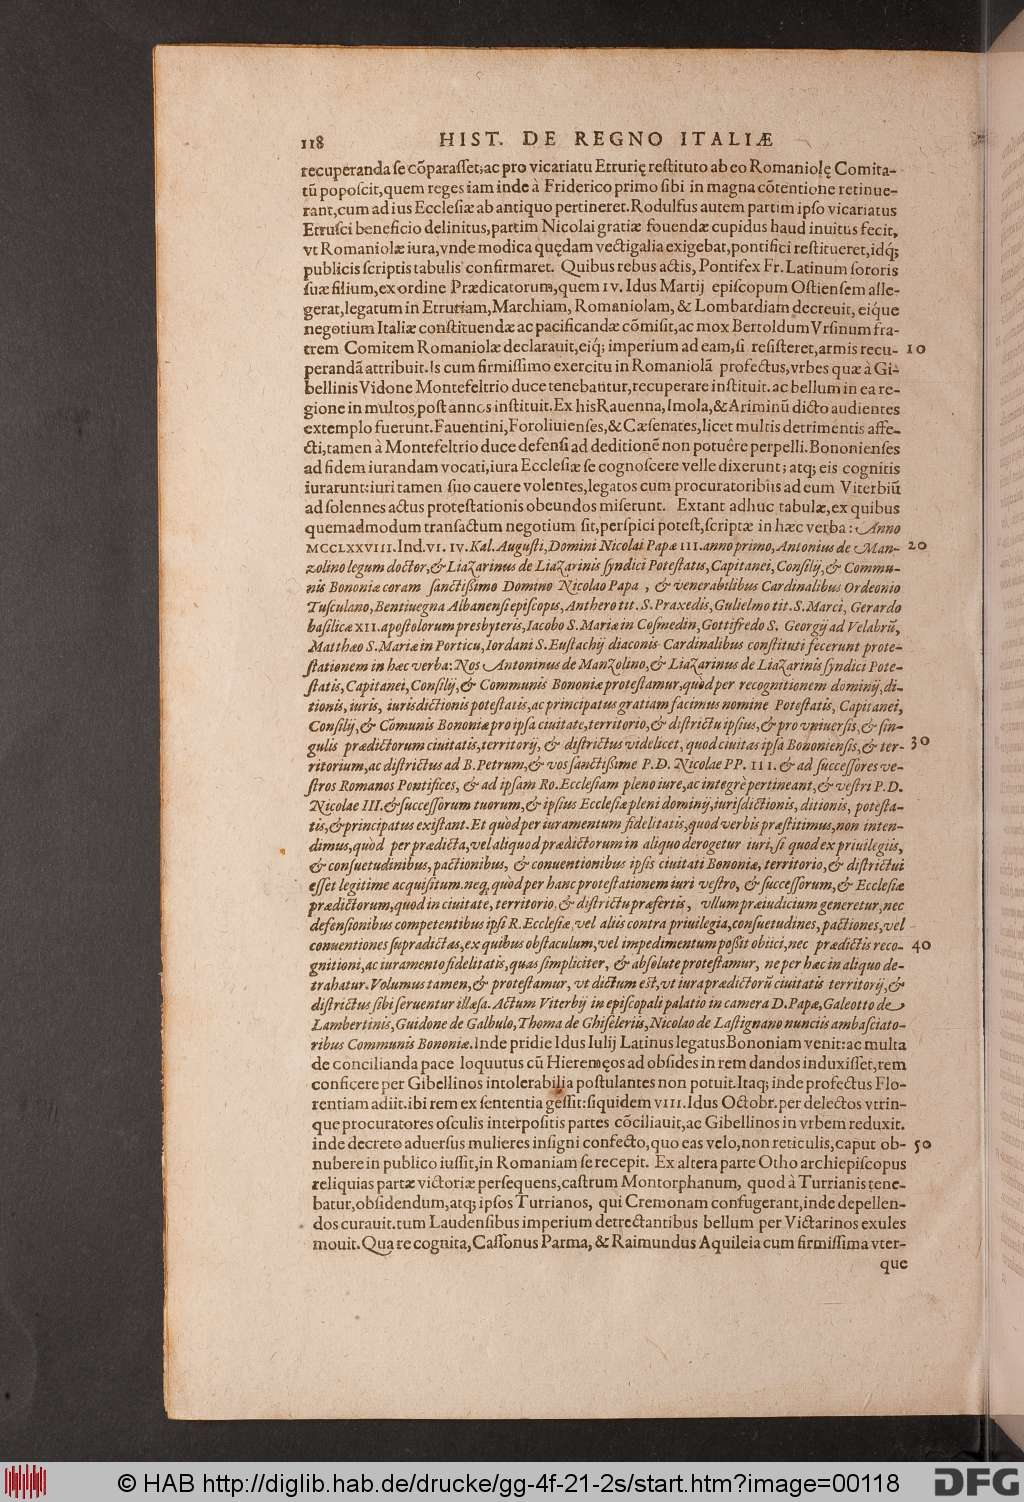 118 HIST. DE REGNO ITALIÆ
recuperanda se cõparasset; ac pro vicariatu Etrurię restituto ab eo Romaniolę Comita-
tũ poposcit, quem reges iam inde à Friderico primo sibi in magna cõtentione retinue-
rant, cum ad ius Ecclesiæ ab antiquo pertineret. Rodulfus autem partim ipso vicariatus
Etrusci beneficio delinitus, partim Nicolai gratiæ fouendæ cupidus haud inuitus fecit,
vt Romaniolæ iura, vnde modica quędam vectigalia exigebat, pontifici restitueret, idq́;
publicis scriptis tabulis confirmaret. Quibus rebus actis, Pontifex Fr. Latinum sororis
suæ filium, ex ordine Prædicatorum, quem IV. Idus Martij episcopum Ostiensem alle-
gerat, legatum in Etruriam, Marchiam, Romaniolam, & Lombardiam decreuit, eiq́ue
negotium Italiæ constituendæ ac pacificandæ cõmisit, ac mox Bertoldum Vrsinum fra-
trem Comitem Romaniolæ declarauit, eiq́; imperium ad eam, si resisteret, armis recu- 10
perandã attribuit. Is cum firmissimo exercitu in Romaniolã profectus, vrbes quæ à Gi-
bellinis Vidone Montefeltrio duce tenebantur, recuperare instituit. ac bellum in ea re-
gione in multos post annos instituit. Ex his Rauenna, Imola, & Ariminũ dicto audientes
extemplo fuerunt. Fauentini, Foroliuienses, & Cæsenates, licet multis detrimentis affe-
cti, tamen à Montefeltrio duce defensi ad deditionẽ non potuêre perpelli. Bononienses
ad fidem iurandam vocati, iura Ecclesiæ se cognoscere velle dixerunt; atq; eis cognitis
iurarunt: iuri tamen suo cauere volentes, legatos cum procuratoribus ad eum Viterbiũ
ad solennes actus protestationis obeundos miserunt. Extant adhuc tabulæ, ex quibus
quemadmodum transactum negotium sit, perspici potest, scriptæ in hæc verba: Anno
MCCLXXVIII. Ind. VI. IV. Kal. Augusti, Domini Nicolai Papæ III. anno primo, Antonius de Man- 20
zolino legum doctor, & Liazarinus de Liazarinis syndici Potestatis, Capitanei, Consilij, & Commu-
nis Bononiæ coram sanctissimo Domino Nicolao Papa, & venerabilibus Cardinalibus Ordeonio
Tusculano, Bentiuegna Albanensi episcopis, Anthero tit. S. Praxedis, Gulielmo tit. S. Marci, Gerardo
basilicæ XII. apostolorum presbyteris, Iacobo S. Mariæ in Cosmedin, Gottifredo S. Georgij ad Velabrũ,
Matthæo S. Mariæ in Porticu, Iordani S. Eustachij diaconis Cardinalibus constituti fecerunt prote-
stationem in hæc verba: Nos Antoninus de Manzolino, & Liazarinus de Liazarinis syndici Pote-
statis, Capitanei, Consilij, & Communis Bononiæ protestamur, quòd per recognitionem dominij, di-
tionis, iuris, iurisdictionis potestatis, ac principatus gratiam facimus nomine Potestatis, Capitanei,
Consilij, & Cõmunis Bononiæ pro ipsa ciuitate, territorio, & districtu ipsius, & pro vniuersis, & sin-
gulis prædictorum ciuitatis, territorij, & districtus videlicet, quod ciuitas ipsa Bononiensis, & ter- 30
ritorium, ac districtus ad B. Petrum, & vos sanctissime P.D. Nicolae PP. III. & ad successores ve-
stros Romanos Pontifices, & ad ipsam Ro. Ecclesiam pleno iure, ac integrè pertineant, & vestri P.D.
Nicolae III. & successorum tuorum, & ipsius Ecclesiæ pleni dominij, iurisdictionis, ditionis, potesta-
tis, & principatus existant. Et quòd per iuramentum fidelitatis, quod verbis præstitimus, non inten-
dimus, quòd per prædicta, vel aliquod prædictorum in aliquo derogetur iuri, si quod ex priuilegiis,
& consuetudinibus, pactionibus, & conuentionibus ipsis ciuitati Bononiæ, territorio, & districtui
esset legitime acquisitum. neq, quòd per hanc protestationem iuri vestro, & successorum, & Ecclesiæ
prædictorum, quod in ciuitate, territorio, & districtu præfertis, vllum præiudicium generetur, nec
defensionibus competentibus ipsi R. Ecclesiæ, vel aliis contra priuilegia, consuetudines, pactiones, vel
conuentiones supradictas, ex quibus obstaculum, vel impedimentum possit obiici, nec prædictis reco- 40
gnitioni, ac iuramento fidelitatis, quas simpliciter, & absolute protestamur, ne per hæc in aliquo de-
trahatur. Volumus tamen, & protestamur, vt dictum est, vt iura prædictorũ ciuitatis territorij, &
districtus sibi seruentur illæsa. Actum Viterbij in episcopali palatio in camera D. Papæ, Galeotto de
Lambertinis, Guidone de Galbulo, Thoma de Ghiseleriis, Nicolao de Lastignano nunciis ambasciato-
ribus Communis Bononiæ. Inde pridie Idus Iulij Latinus legatus Bononiam venit: ac multa
de concilianda pace loquutus cũ Hieremęos ad obsides in rem dandos induxisset, rem
conficere per Gibellinos intolerabilia postulantes non potuit. Itaq; inde profectus Flo-
rentiam adiit. ibi rem ex sententia gessit: siquidem VIII. Idus Octobr. per delectos vtrin-
que procuratores osculis interpositis partes cõciliauit, ac Gibellinos in vrbem reduxit.
inde decreto aduersus mulieres insigni confecto, quo eas velo, non reticulis, caput ob- 50
nubere in publico iussit, in Romaniam se recepit. Ex altera parte Otho archiepiscopus
reliquias partæ victoriæ persequens, castrum Montorphanum, quod à Turrianis tene-
batur, obsidendum, atq; ipsos Turrianos, qui Cremonam confugerant, inde depellen-
dos curauit. tum Laudensibus imperium detrectantibus bellum per Victarinos exules
mouit. Qua re cognita, Cassonus Parma, & Raimundus Aquileia cum firmissima vter-
que
© HAB http://diglib.hab.de/drucke/gg-4f-21-2s/start.htm?image=00118
DFG